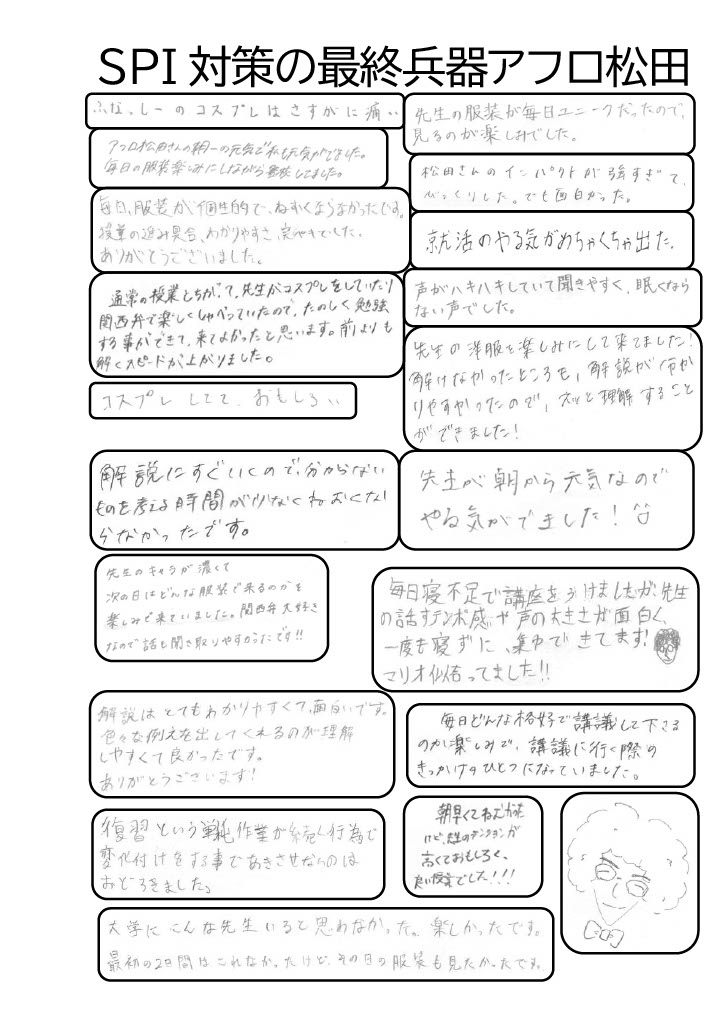 SPI対策の最終兵器アフロ松田
ふなっしーのコスプレはさすがに痛い
先生の服装が毎日ユニークだったので、
見るのが楽しみでした。
アフロ松田さんの朝一の元気で私も元気がでました。
毎日の服装楽しみにしながら登校してました。
松田さんのインパクトが強すぎて、
びっくりした。でも面白かった。
毎日、服装が個性的で、ねむくならなかったです。
授業の進み具合、わかりやすさ、
ありがとうございました。
就活のやる気がめちゃくちゃ出た。
通常の授業とちがって、先生がコスプレをしていたり
関西弁で楽しくしゃべっていたので、たのしく勉強
する事ができて、来てよかったと思います。前よりも
解くスピードが上がりました。
声がハキハキしていて聞きやすく、眠くなら
ない声でした。
先生の洋服を楽しみにして来てました!
解けなかったところも、解説が分か
りやすかったので、スッと理解すること
ができました!
コスプレしてて、おもしろい
解説にすぐいくので、分からない
ものを考える時間が少なくねむくな
らなかったです。
先生が朝から元気なので
やる気がでました!
先生のキャラが濃くて
次の日はどんな服装で来るのかを
楽しみで来ていました。関西弁大好き
なので話も聞き取りやすかったです!!
毎日寝不足で講座をうけましたが、先生
の話すテンポ感や声の大きさが面白く、
一度も寝ずに、集中できてます!
マリオ似合ってました!!
解説はとてもわかりやすくて、面白いです。
色々な例えを出してくれるのが理解
しやすくて良かったです。
ありがとうございます!
毎日どんな格好で講議して下さる
のか楽しみで、講議に行く際の
きっかけのひとつになっていました。
復習という単純作業が続く行為で
変化付けをする事であきさせないのは
おどろきました。
朝早くてねむかった
けど、先生のテンションが
高くておもしろく、
良い授業でした!!!
大学にこんな先生いると思わなかった。楽しかったです。
最初の2日間はこれなかったけど、その日の服装も見たかったです。